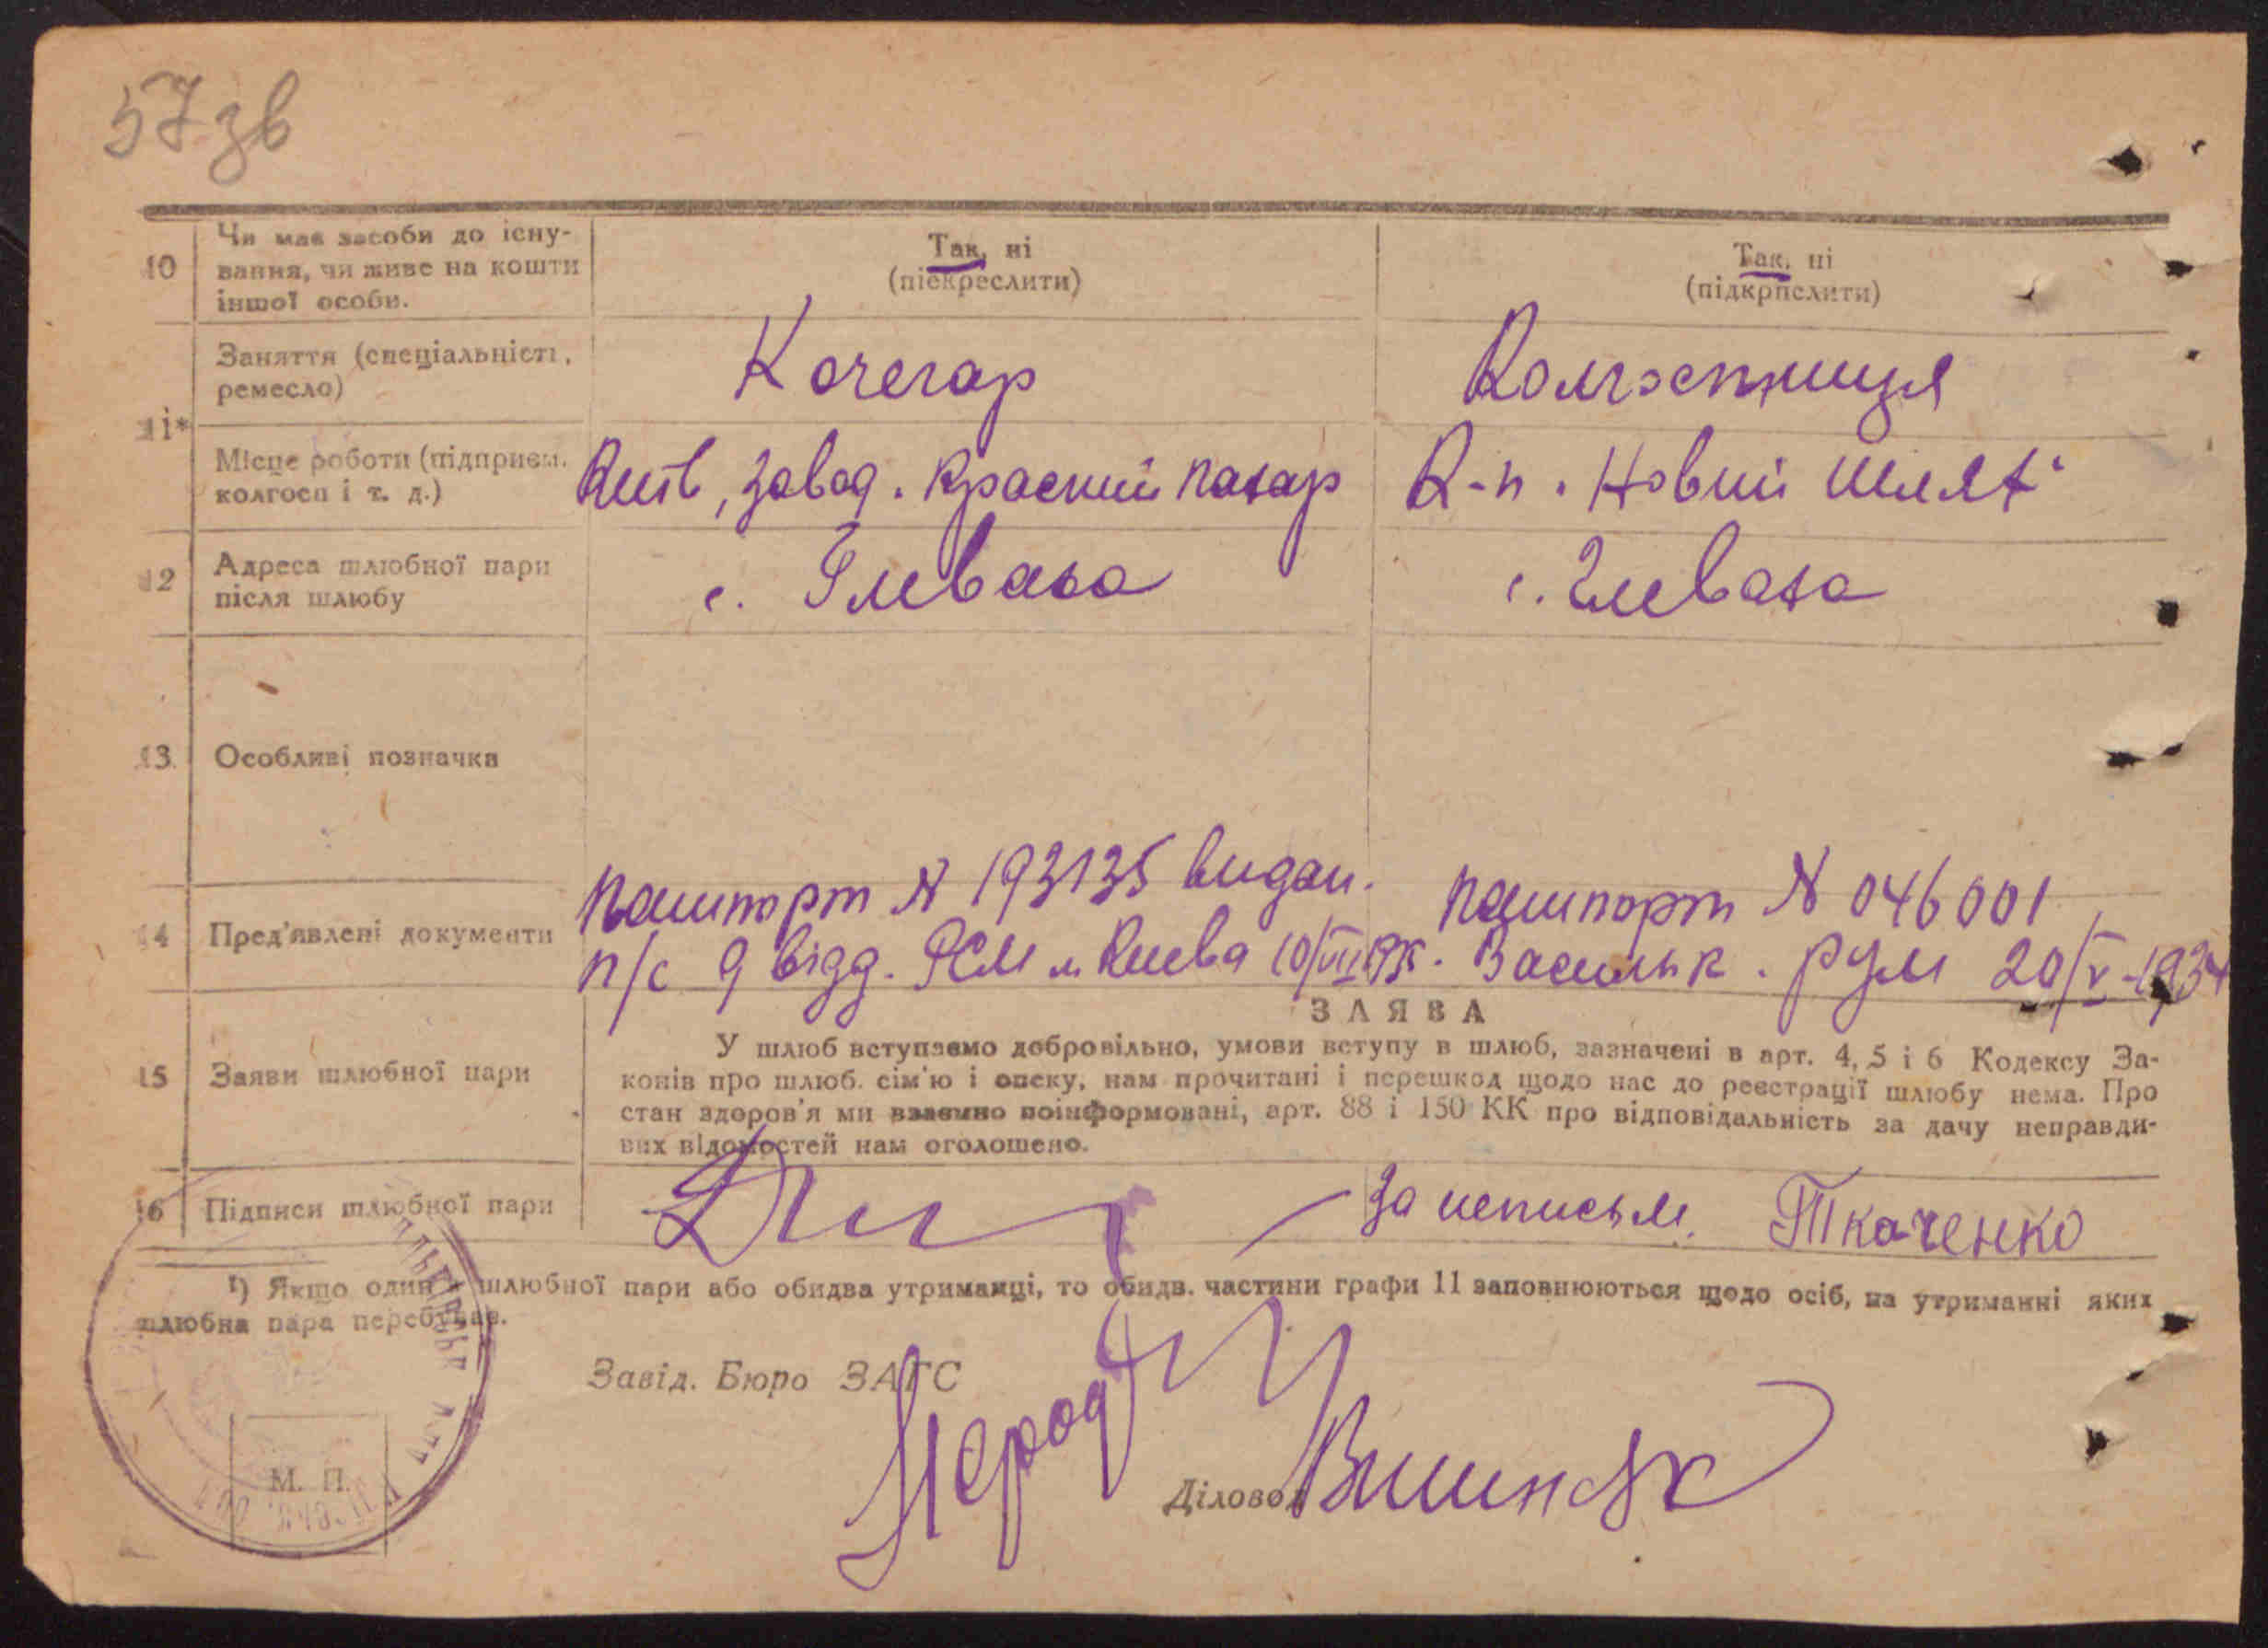 57 зв
10 Чи має засоби до існу-
вання, чи живе на кошти
іншої особи.
Так, ні
(піекреслити)
Так, ні
(підкрпслити)
11*
Заняття (спеціальність,
ремесло)
Кочегар
Колгоспниця
Місце роботи (підприєм.
колгосп і т. д.)
Київ, завод. Красний пахар
К-п. Новий Шлях"
12 Адреса шлюбної пари
після шлюбу
с. Глеваха
с. Глеваха
13. Особливі позначки
14 Пред'явлені документи
Пашпорт № 193135 видан.
п/с 9 відд. РСМ м. Києва 10/VII
Пашпорт № 046001
Васильк. РУМ 20/V-1934
15 Заяви шлюбної пари
ЗАЯВА
У шлюб вступаємо добровільно, умови вступу в шлюб, зазначені в арт. 4, 5 і 6 Кодексу За-
конів про шлюб. сім'ю і опеку, нам прочитані і перешкод щодо нас до реєстрації шлюбу нема. Про
стан здоров'я ми взаємно поінформовані, арт. 88 і 150 КК про відповідальність за дачу неправди-
вих відомостей нам оголошено.
16 Підписи шлюбної пари
За неписьм. Ткаченко
¹) Якщо один з шлюбної пари або обидва утриманці, то обидв. частини графи 11 заповнюються щодо осіб, на утриманні яких
шлюбна пара перебуває.
Завід. Бюро ЗАГС
М. П.
Діловод